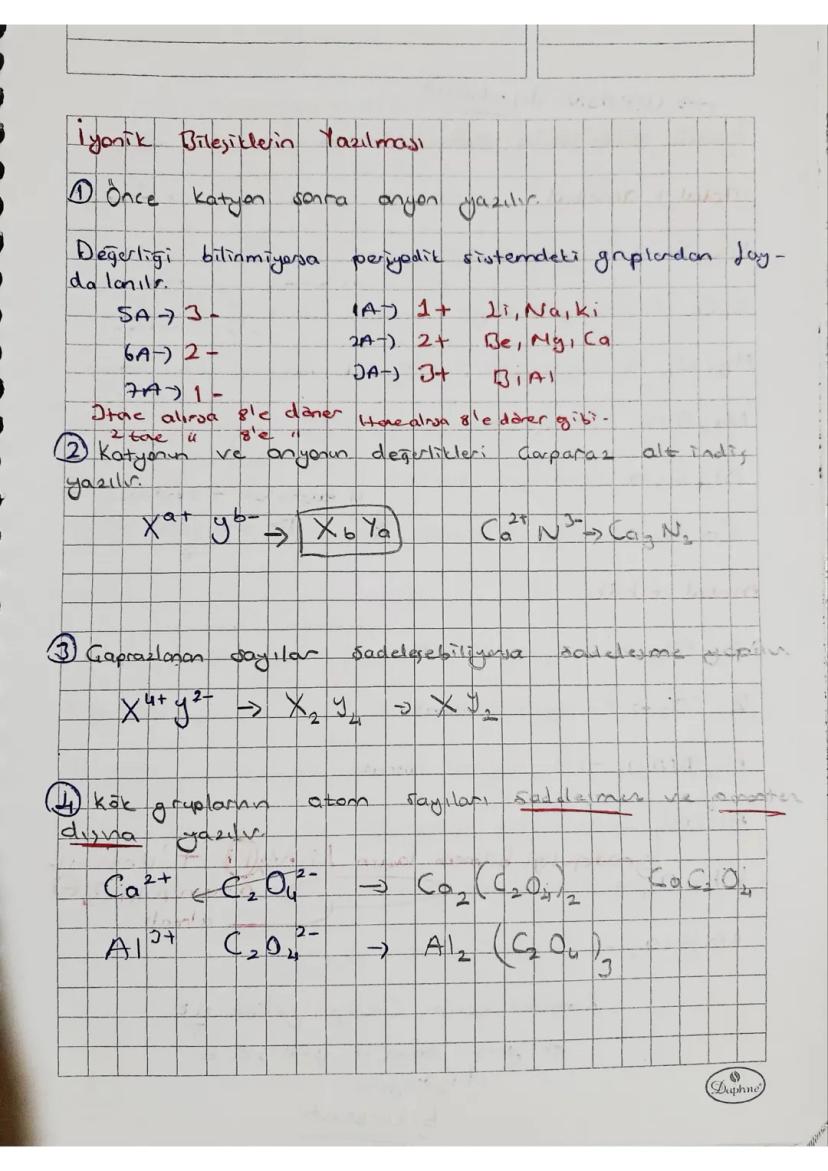 İyonik Bileşiklerin Yazılması
① Önce katyon sonra anyon yazılır.
Değerliği bilinmiyorsa periyodik sistemdeki gruplardan fay-
dalanılır.
5A → 3- 1A → 1+ Li, Na, Ki
6A → 2- 2A → 2+ Be, Mg, Ca
7A → 1- 3A → 3+ B, Al
3 tae alırsa 8'e döner 1 tae alırsa 8'e döner gibi.
2 tae " 8'e "
② Katyonun ve anyonun değerlikleri çarpraz alt indis
yazılır.
Xᵃ⁺ yᵇ⁻ → X_b Y_a Ca²⁺ N³⁻ → Ca₃ N₂
③ Çaprazlanan sayılar sadeleşebiliyorsa sadeleşme yapılır
X⁴⁺ y²⁻ → X₂ Y₄ → X Y₂
④ Kök grupların atom sayıları sadeleşmez ve parantez
dışına yazılır
Ca²⁺ C₂O₄²⁻ → Ca₂(C₂O₄)₂ CaC₂O₄
Al³⁺ C₂O₄²⁻ → Al₂ (C₂O₄)₃
Daphne